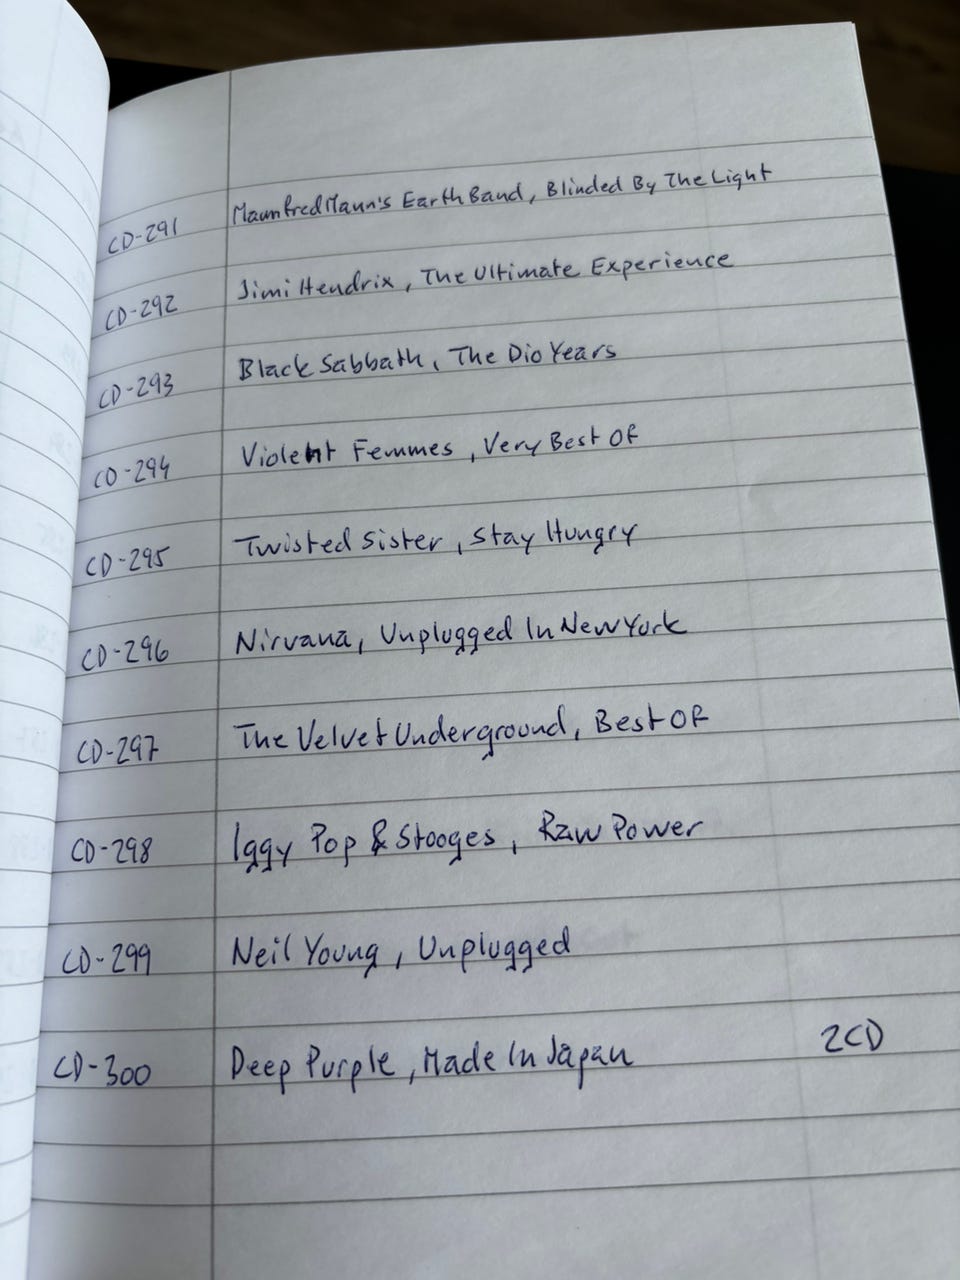 CD-291 Maunfred Mann's Earth Band, Blinded By The Light
CD-292 Jimi Hendrix, The Ultimate Experience
CD-293 Black Sabbath, The Dio Years
CD-294 Violent Femmes, Very Best Of
CD-295 Twisted Sister, Stay Hungry
CD-296 Nirvana, Unplugged In New York
CD-297 The Velvet Underground, Best Of
CD-298 Iggy Pop & Stooges, Raw Power
CD-299 Neil Young, Unplugged
CD-300 Deep Purple, Made In Japan 2CD